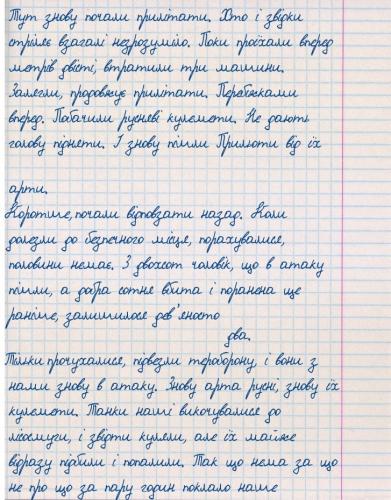 Тут знову почали прилітати. Хто і звідки
стріляє взагалі незрозуміло. Поки проїхали вперед
метрів двісті, втратили три машини.
Залягли, продовжує прилітати. Перебіжками
вперед. Побачили русневі кулемети. Не дають
голову підняти. І знову пішли Прильоти від їх
арти.
Коротше, почали відповзати назад. Коли
долезли до безпечного місця, порахувалися,
половини немає. З двохсот чоловік, що в атаку
пішли, а добра сотня вбита і поранена ще
раніше, залишилося дев'яносто
два.
Тільки прочухалися, підвезли тероборону, і вони з
нами знову в атаку. Знову арта русні, знову їх
кулемети. Танки наші викочувалися до
лісосмуги, і звідти куляли, але їх майже
відразу підбили і попалили. Так що нема за що
не про що за пару годин поклало наше